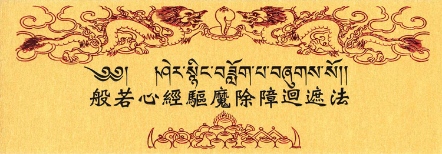 ༄༅། །ཤེར་སྙིང་བཟློག་པ་བཞུགས་སོ།།
般若心經驅魔除障迴遮法